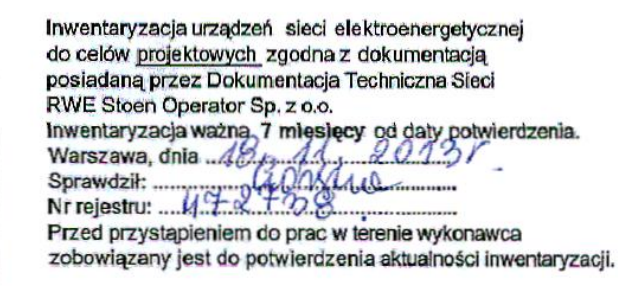 Inwentaryzacja urządzeń sieci elektroenergetycznej
do celów projektowych zgodna z dokumentacją
posiadaną przez Dokumentacja Techniczna Sieci
RWE Stoen Operator Sp. z o.o.
Inwentaryzacja ważna 7 miesięcy od daty potwierdzenia.
Warszawa, dnia 18.11.2013r
Sprawdził:
Nr rejestru: 472738
Przed przystąpieniem do prac w terenie wykonawca
zobowiązany jest do potwierdzenia aktualności inwentaryzacji.